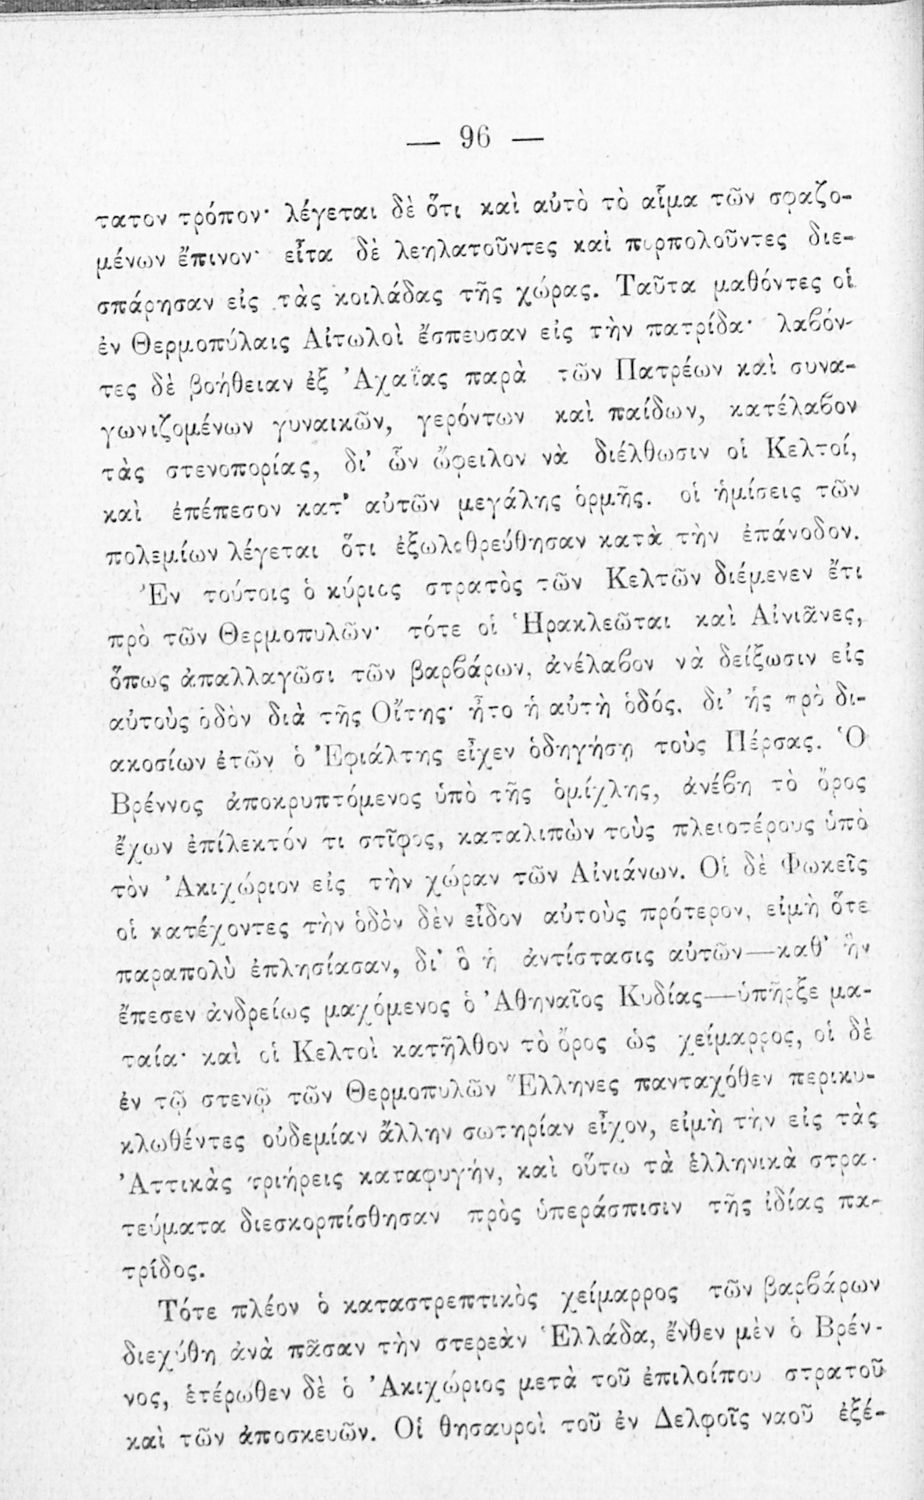 — 96 —
τατον τρόπον· λέγεται δὲ ὅτι καὶ αὐτὸ τὸ αἷμα τῶν σφαζο-
μένων ἔπινον· εἶτα δὲ λεηλατοῦντες καὶ πυρπολοῦντες διε-
σπάρησαν εἰς τὰς κοιλάδας τῆς χώρας. Ταῦτα μαθόντες οἱ
ἐν Θερμοπύλαις Αἰτωλοὶ ἔσπευσαν εἰς τὴν πατρίδα· λαβόν-
τες δὲ βοήθειαν ἐξ Ἀχαΐας παρὰ τῶν Πατρέων καὶ συνα-
γωνιζομένων γυναικῶν, γερόντων καὶ παίδων, κατέλαβον
τὰς στενοπορίας, δι' ὧν ὤφειλον νὰ διέλθωσιν οἱ Κελτοί,
καὶ ἐπέπεσον κατ' αὐτῶν μεγάλης ὁρμῆς. οἱ ἡμίσεις τῶν
πολεμίων λέγεται ὅτι ἐξωλοθρεύθησαν κατὰ τὴν ἐπάνοδον.
Ἐν τούτοις ὁ κύριος στρατὸς τῶν Κελτῶν διέμενεν ἔτι
πρὸ τῶν Θερμοπυλῶν· τότε οἱ Ἡρακλεῶται καὶ Αἰνιᾶνες,
ὅπως ἀπαλλαγῶσι τῶν βαρβάρων, ἀνέλαβον νὰ δείξωσιν εἰς
αὐτοὺς ὁδὸν διὰ τῆς Οἴτης· ἦτο ἡ αὐτὴ ὁδός, δι' ἧς πρὸ δι-
ακοσίων ἐτῶν ὁ Ἐφιάλτης εἶχεν ὁδηγήση τοὺς Πέρσας. Ὁ
Βρέννος ἀποκρυπτόμενος ὑπὸ τῆς ὁμίχλης, ἀνέβη τὸ ὄρος
ἔχων ἐπίλεκτόν τι στῖφος, καταλιπὼν τοὺς πλειοτέρους ὑπὸ
τὸν Ἀκιχώριον εἰς τὴν χώραν τῶν Αἰνιάνων. Οἱ δὲ Φωκεῖς
οἱ κατέχοντες τὴν ὁδὸν δὲν εἶδον αὐτοὺς πρότερον, εἰμὴ ὅτε
παραπολὺ ἐπλησίασαν, δι' ὃ ἡ ἀντίστασις αὐτῶν—καθ' ἣν
ἔπεσεν ἀνδρείως μαχόμενος ὁ Ἀθηναῖος Κυδίας—ὑπῆρξε μα-
ταία· καὶ οἱ Κελτοὶ κατῆλθον τὸ ὄρος ὡς χείμαρρος, οἱ δὲ
ἐν τῷ στενῷ τῶν Θερμοπυλῶν Ἕλληνες πανταχόθεν περικυ-
κλωθέντες οὐδεμίαν ἄλλην σωτηρίαν εἶχον, εἰμὴ τὴν εἰς τὰς
Ἀττικὰς τριήρεις καταφυγήν, καὶ οὕτω τὰ ἑλληνικὰ στρα-
τεύματα διεσκορπίσθησαν πρὸς ὑπεράσπισιν τῆς ἰδίας πα-
τρίδος.
Τότε πλέον ὁ καταστρεπτικὸς χείμαρρος τῶν βαρβάρων
διεχύθη ἀνὰ πᾶσαν τὴν στερεὰν Ἑλλάδα, ἔνθεν μὲν ὁ Βρέν-
νος, ἑτέρωθεν δὲ ὁ Ἀκιχώριος μετὰ τοῦ ἐπιλοίπου στρατοῦ
καὶ τῶν ἀποσκευῶν. Οἱ θησαυροὶ τοῦ ἐν Δελφοῖς ναοῦ ἐξέ-